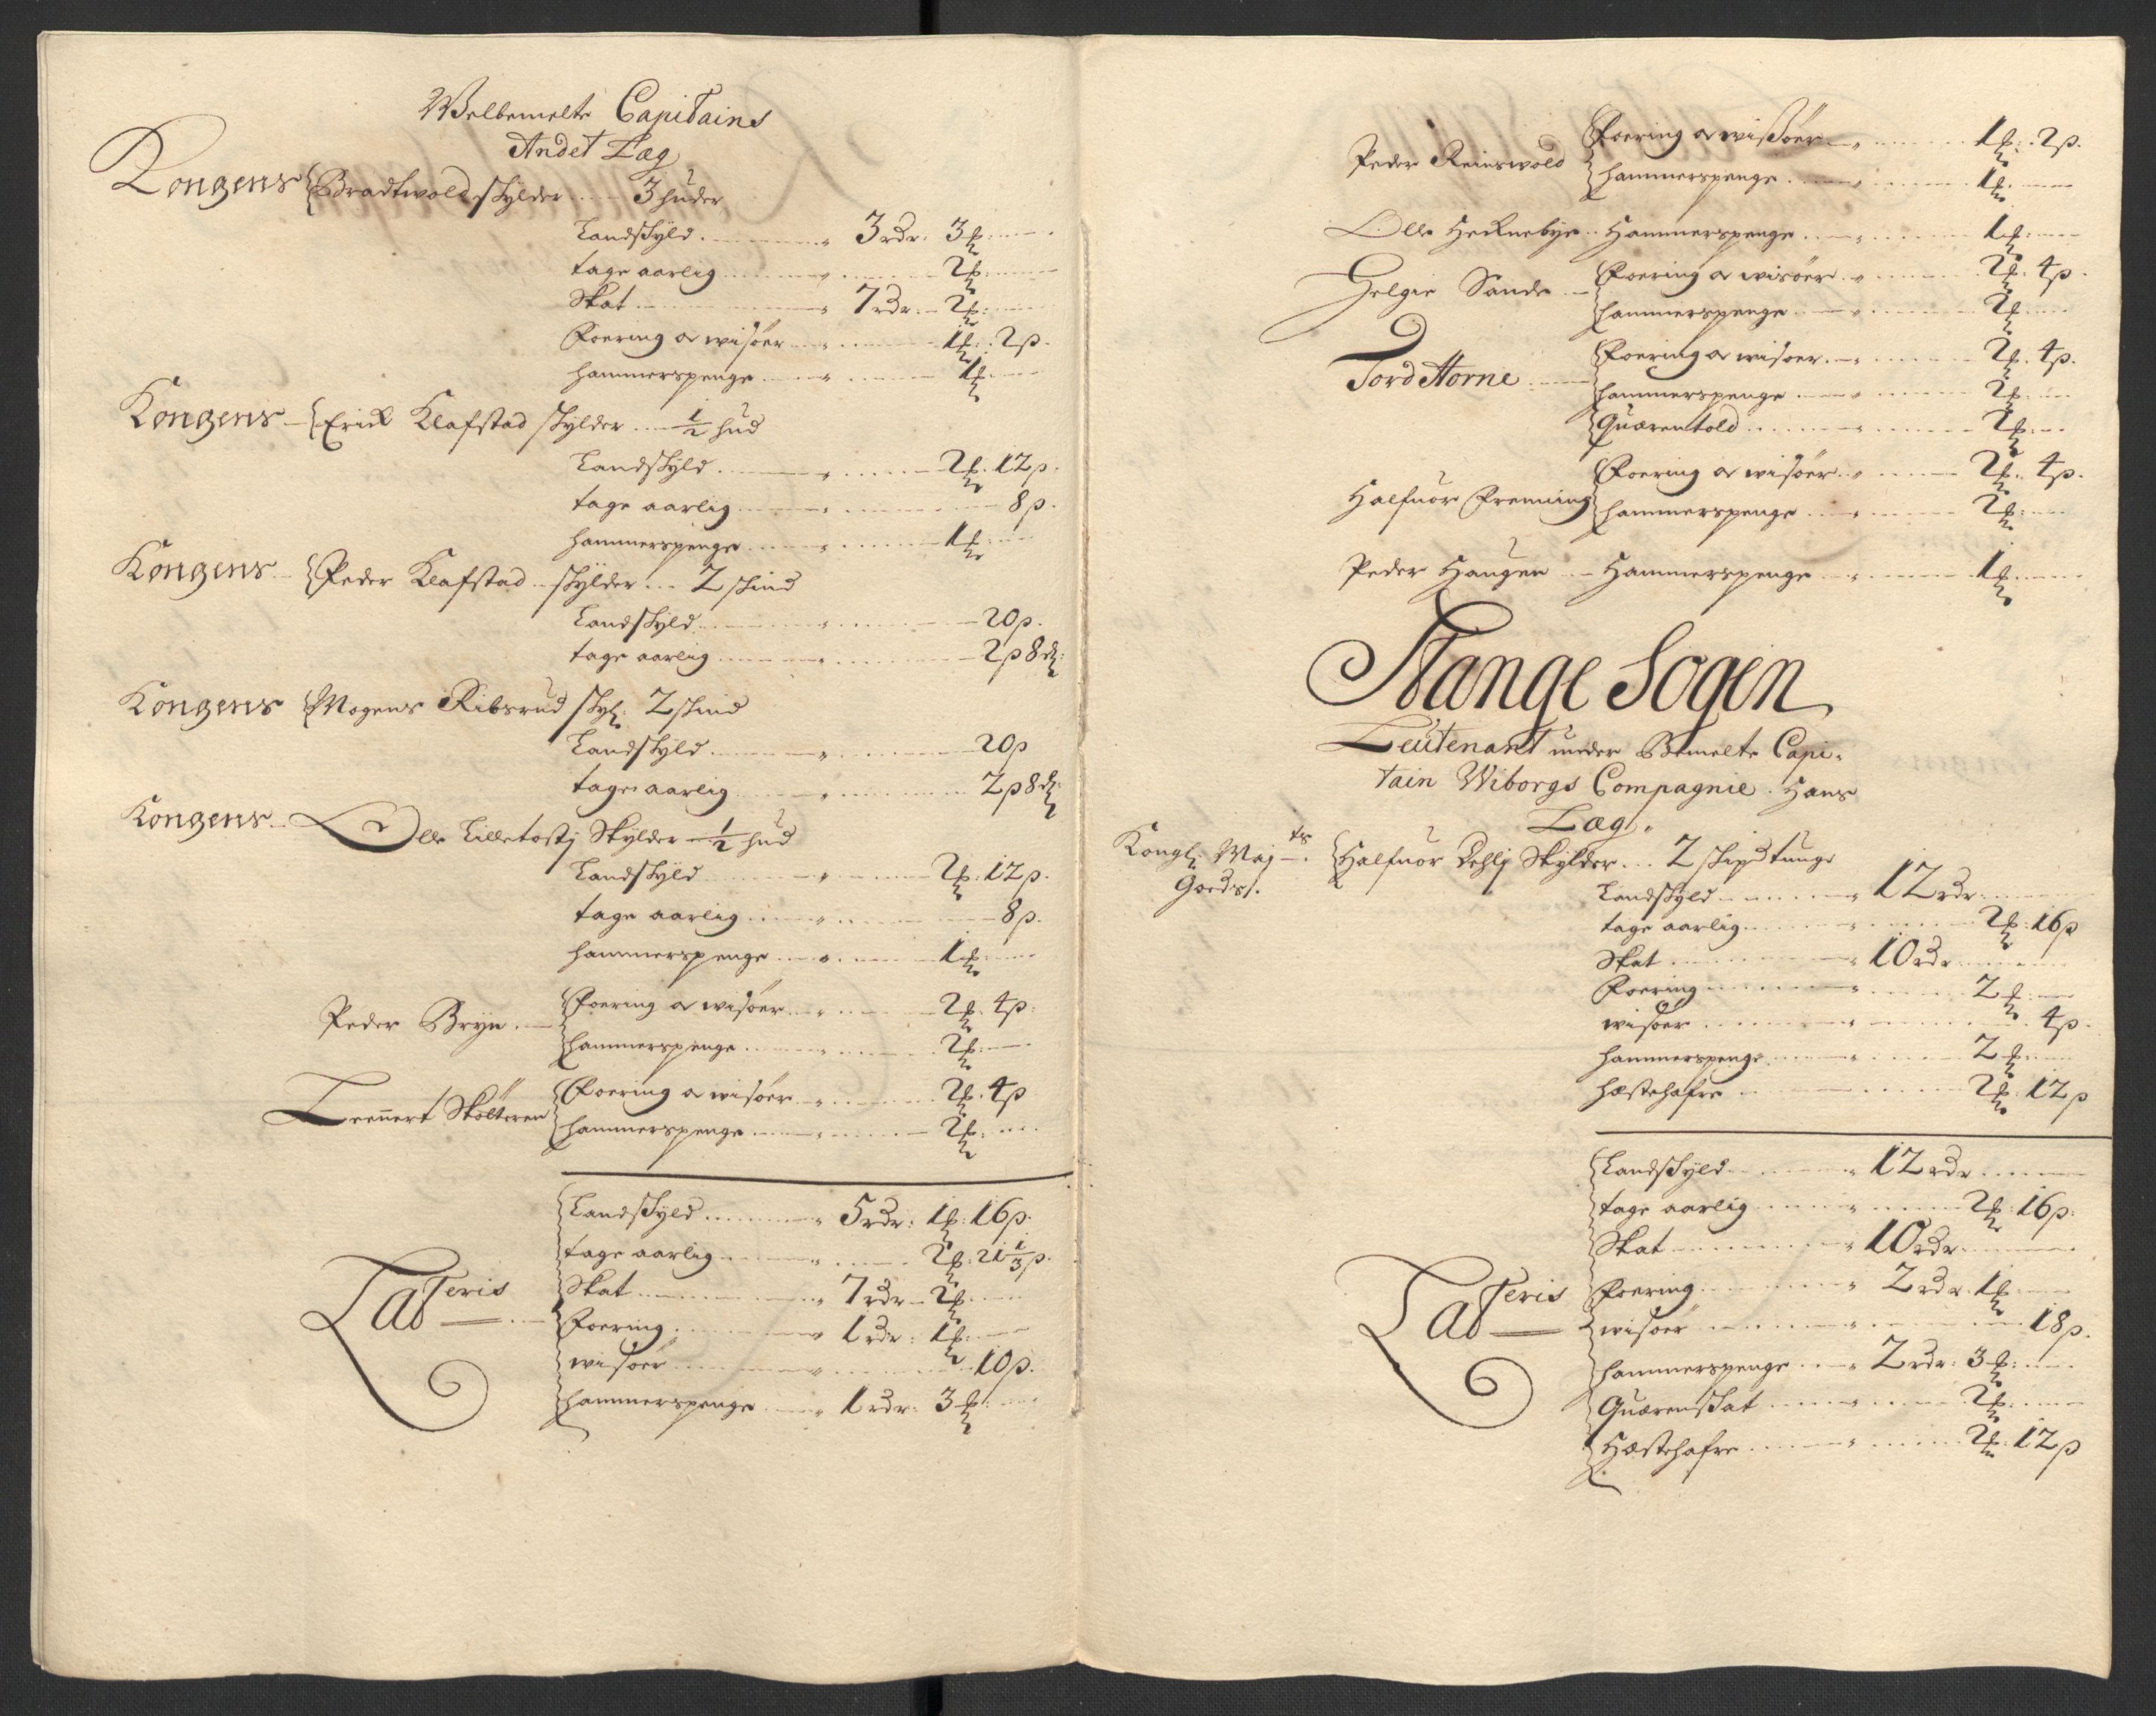 Welbemelte Capitains
Andet Læg
Kongens Bradtwold skylder 3 huder
Landskyld 3 rdr. 3 ₰
tage aarlig 2 ₰
Skat 7 rdr. 2 ₰
Foering og wisøer 1 ₰. 2 β.
hammerspenge 1 ₰
Kongens Erick Klafstad skylder 1/2 hud
Landskyld 2 ₰. 12 β.
tage aarlig 8 β.
hammerspenge 1 ₰
Kongens Peder Klafstad skylder 2 skind
Landskyld 20 β.
tage aarlig 2 β 8 ₰
Kongens Mogens Ribsrud skyl: 2 skind
Landskyld 20 β
tage aarlig 2 β 8 ₰
Kongens Olle Lilletostj Skylder 1/2 hud
Landskyld 2 ₰. 12 β.
tage aarlig 8 β.
hammerspenge 1 ₰
Peder Bryn Foering og wisøer 2 ₰. 4 β.
hammerspenge 2 ₰
Lennert Skölteren Foering og wisøer 2 ₰. 4 β
hammerspenge 2 ₰
Landskyld 5 rdr: 1 ₰: 16 β.
tage aarlig 2 ₰: 21 1/3 β.
Lateris Skat 7 rdr 2 ₰
Foering 1 rdr: 1 ₰
wisøer 10 β.
hammerspenge 1 rdr: 3 ₰
Peder Reinswold Foering og wissøer 1 ₰: 2 β.
hammerspenge 1 ₰
Olle Hecknebye Hammerspenge 1 ₰
Helgie Sande Foering og wisøer 2 ₰. 4 β.
hammerspenge 2 ₰
Tord Horne Foering og wisøer 2 ₰. 4 β.
hammerspenge 2 ₰
Quærentold 2 ₰
Halfuor Fremming Foering og wisøer 2 ₰. 4 β.
hammerspenge 2 ₰
Peder Haugen Hammerspenge 1 ₰
Stange Sogen
Leutenant under Bemelte Capi-
tain Wiborgs Compagnie. Hans
Læg.
Kongl: Maj ts. Halfuor Dehlj Skylder 2 skipd tunge
Goeds.
Landskyld 12 rdr
tage aarlig 2 ₰: 16 β
Skat 10 rdr
Foering 2 ₰
wisøer 4 β.
hammerspenge 2 ₰
hæstehafre 2 ₰: 12 β
Landskyld 12 rdr
tage aarlig 2 ₰: 16 β.
Skat 10 rdr.
Lateris Foering 2 rdr. 1 ₰
wisøer 18 β.
hammerspenge 2 rdr: 3 ₰
Quærenskat 2 ₰
Hæstehafre 2 ₰: 12 β